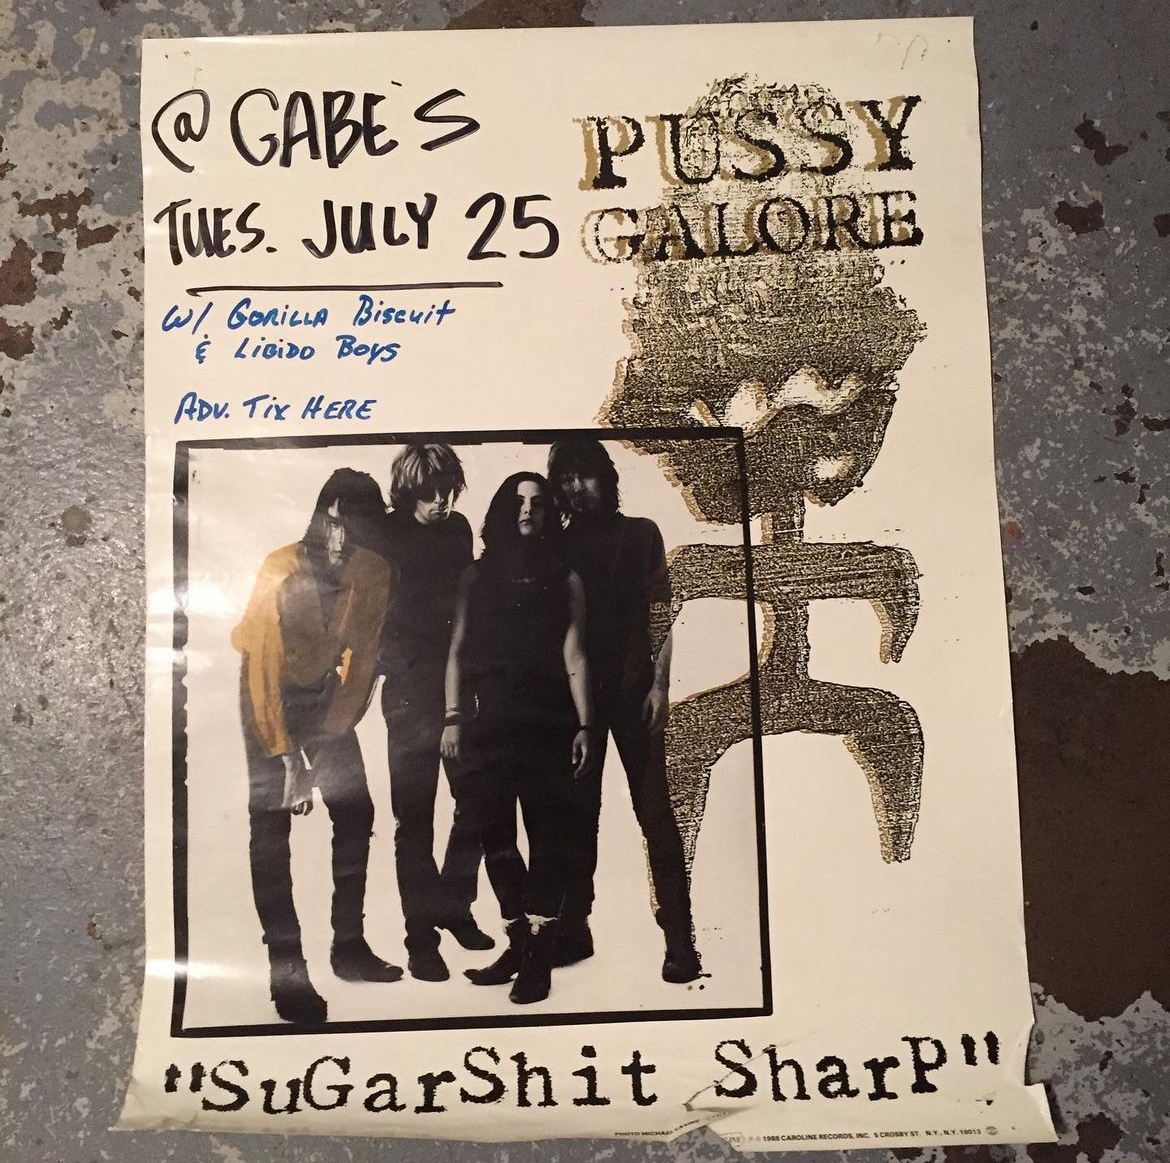 @ GABE'S
TUES. JULY 25
W/ GORILLA BISCUIT
& LIBIDO BOYS
ADV. TIX HERE
PUSSY
GALORE
"SuGarShit SharP"
PHOTO MICHAEL
℗ © 1988 CAROLINE RECORDS, INC. 5 CROSBY ST. N.Y., N.Y. 10013